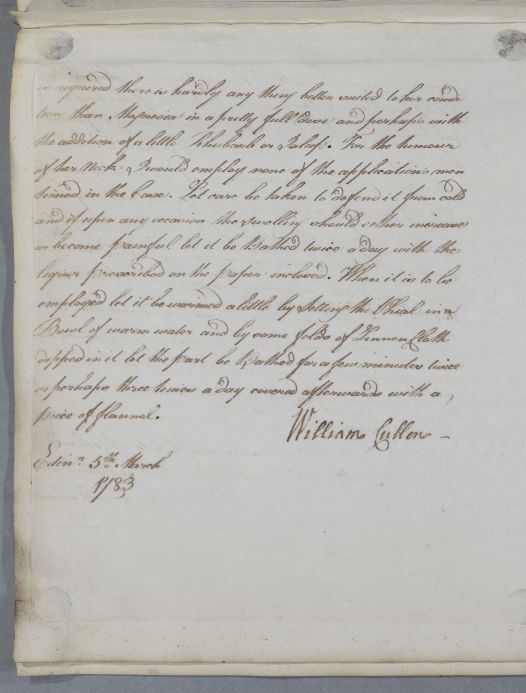 is required there is hardly any thing better suited to her condi
tion than Magnesia in a pretty full dose and perhaps with
the addition of a little Rhubarb or Jalap. For the tumour
of her Neck I would employ none of the applications men
tioned in the Case. Let care be taken to defend it from cold
and if upon any occasion the swelling should either increase
or become painful let it be Bathed twice a day with the
liquor prescribed on the paper inclosed. When it is to be
employed let it be warmed a little by setting the Phial in a
Bowl of warm water and by some folds of Linnen Cloth
dipped in it let the part be Bathed for a few minutes twice
or perhaps three times a day covered afterwards with a
piece of flannel.
William Cullen
Edinr. 5th. March
1783